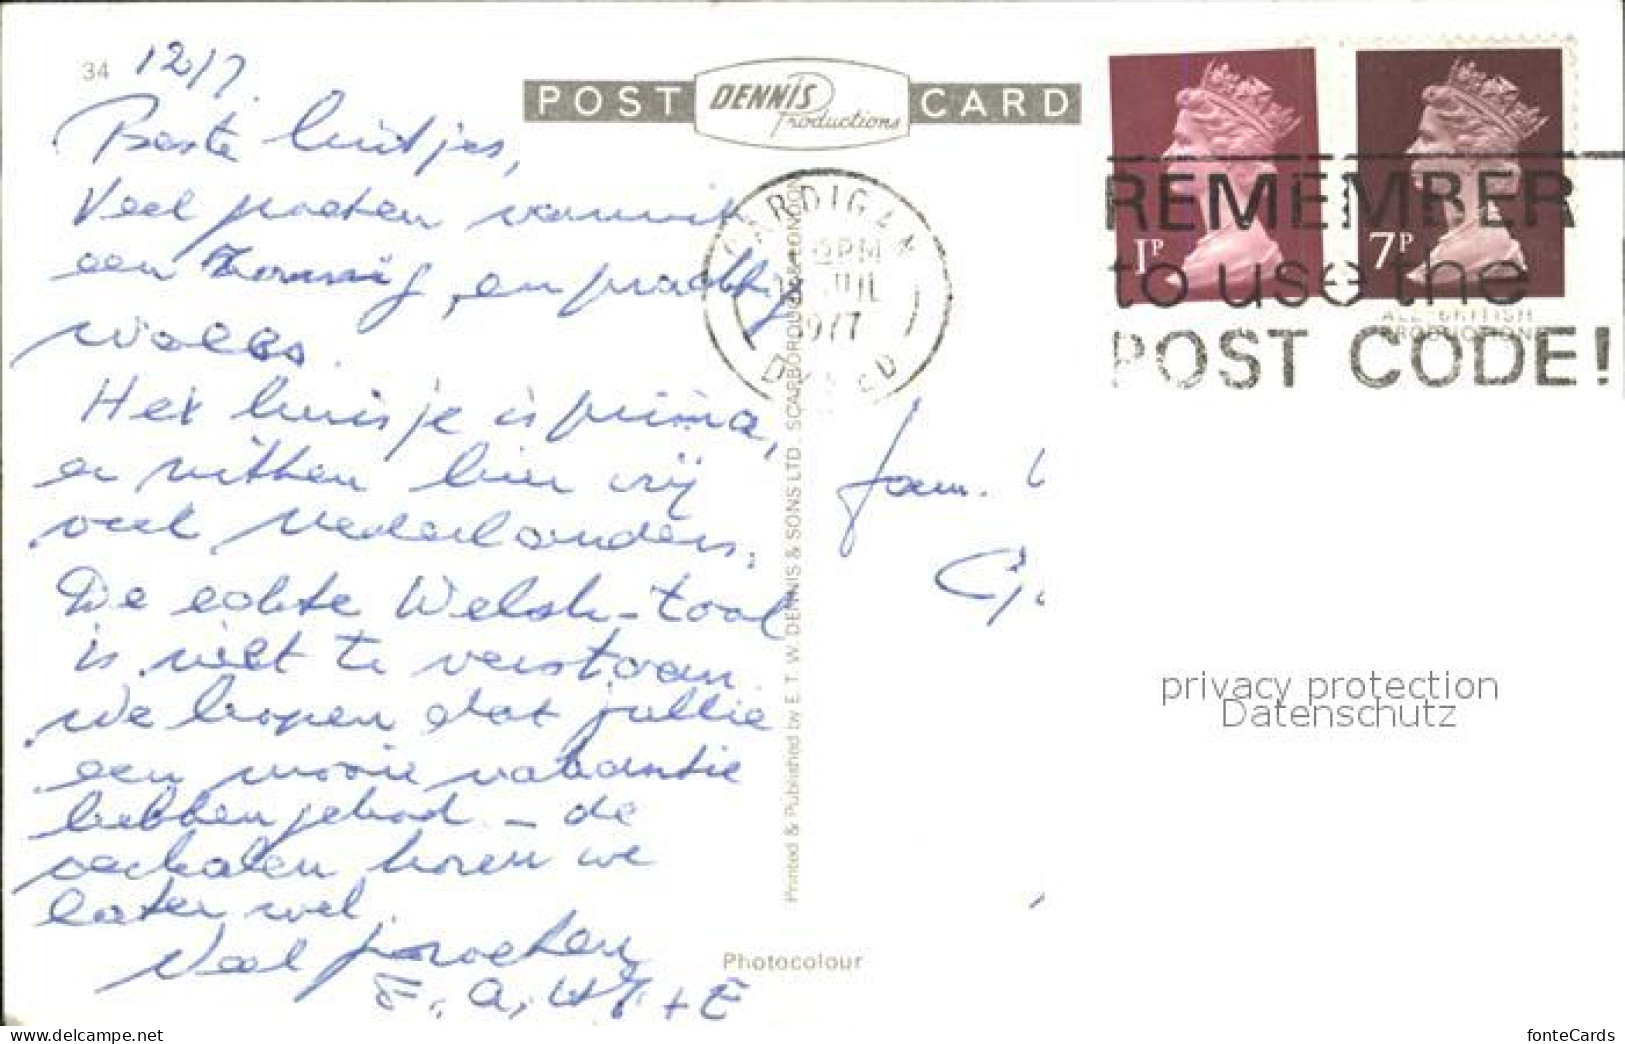 34
12/7.
POST DENNIS Productions CARD
Beste luitjes,
Veel groeten vanuit
een zonnig, en prachtig
Wales.
Het huisje is prima,
er zitten hier vrij
veel Nederlanders.
De echte Welsh-taal
is niet te verstaan.
We hopen dat jullie
een mooie vakantie
hebben gehad - de
verhalen horen we
later wel.
Veel groeten
CARDIGAN
PM
JUL
1977
DYFED
1P
7P
REMEMBER
to use the
POST CODE!
ALL BRITISH
PRODUCTION
Printed & Published by E. T. W. DENNIS & SONS LTD. SCARBOROUGH & LONDON
fam.
privacy protection
Datenschutz
Photocolour
fonteCards